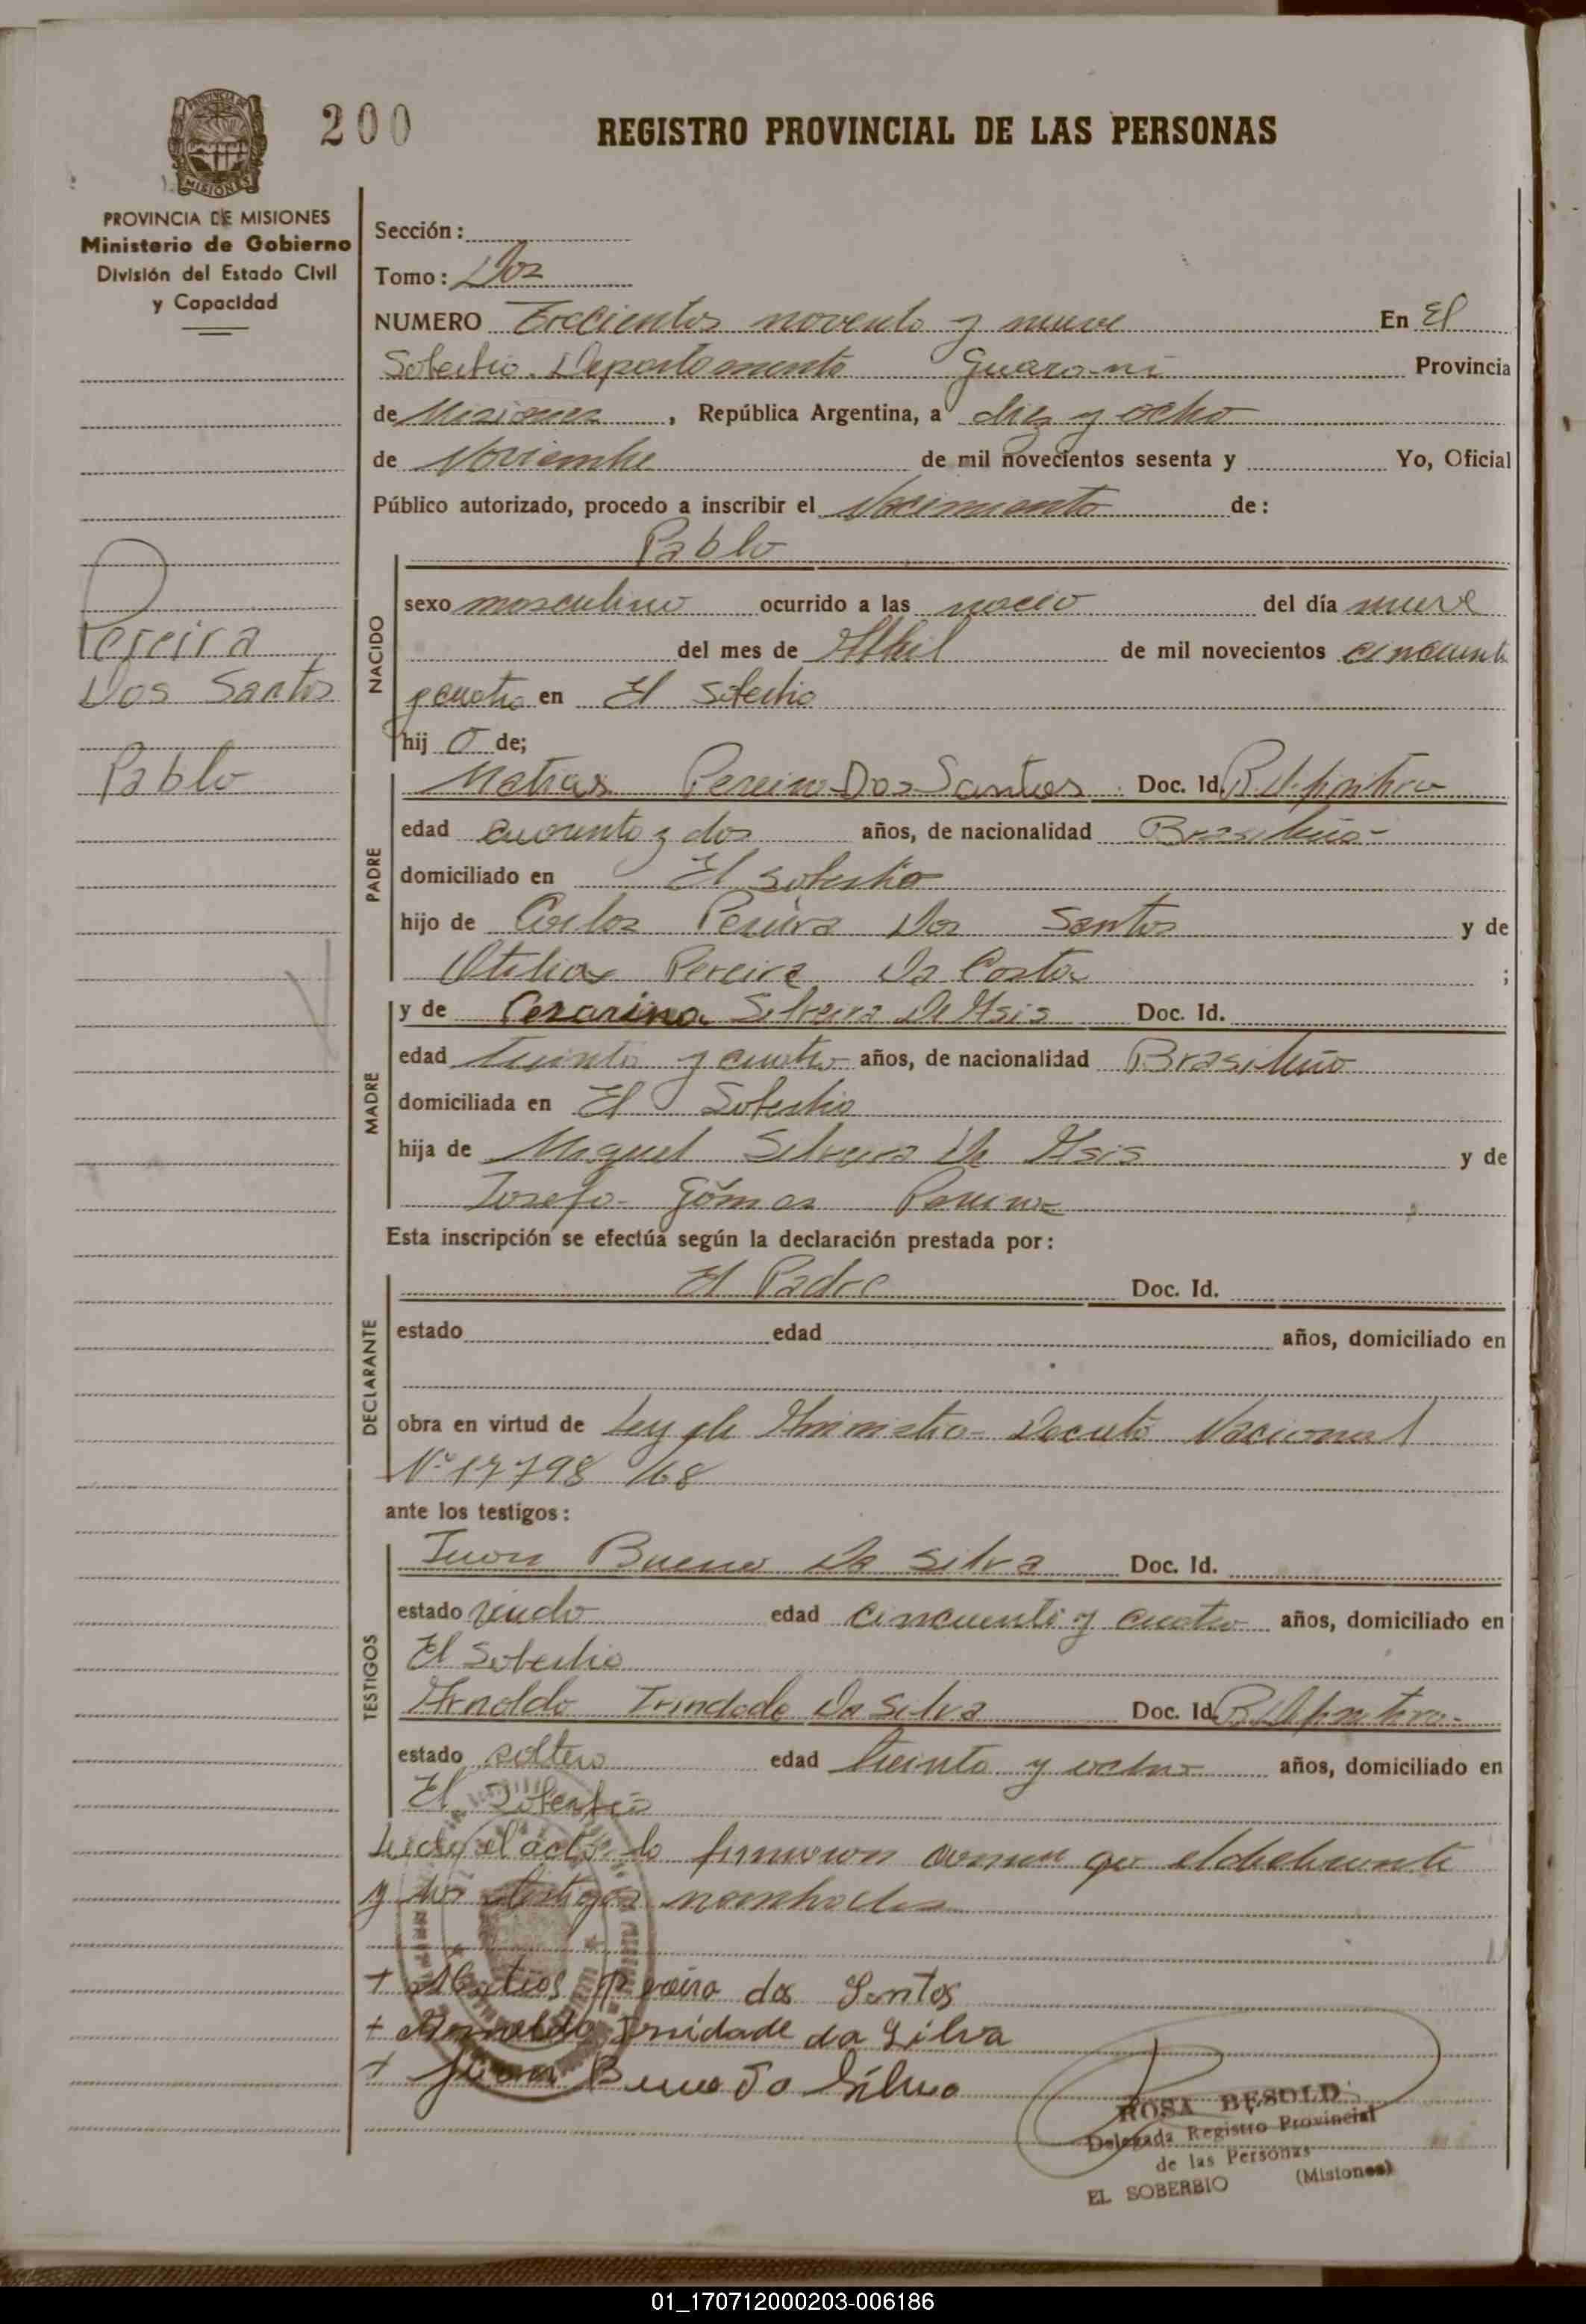 200
REGISTRO PROVINCIAL DE LAS PERSONAS
MISIONES
PROVINCIA DE MISIONES
Ministerio de Gobierno
División del Estado Civil
y Capacidad
Sección:
Tomo: Dos
NUMERO Trecientos novento y nueve En El
Soberbio Departamento Guarani Provincia
de Misiones, República Argentina, a diez y ocho
de Noviembre de mil novecientos sesenta y Yo, Oficial
Público autorizado, procedo a inscribir el Nacimiento de:
Pablo
Pereira
Dos Santos
Pablo
NACIDO
sexo masculino ocurrido a las nacio del día nueve
del mes de Abril de mil novecientos cincuenta
y cuatro en El Soberbio
hij o de;
PADRE
Matias Pereira Dos Santos Doc. Id.
edad cuarenta y dos años, de nacionalidad Brasileño
domiciliado en El Soberbio
hijo de Carlos Pereira Dos Santos y de
Otilia Pereira Da Costa ;
MADRE
y de Cezarina Silveira De Asis Doc. Id.
edad treinta y cuatro años, de nacionalidad Brasileño
domiciliada en El Soberbio
hija de Miguel Silveira De Asis y de
Josefa Gómes y de
Esta inscripción se efectúa según la declaración prestada por:
DECLARANTE
El Padre Doc. Id.
estado edad años, domiciliado en
obra en virtud de Ley de Decreto Nacional
Nº 17798/68
ante los testigos:
TESTIGOS
Juan Bueno Da Silva Doc. Id.
estado viudo edad cincuenta y cuatro años, domiciliado en
El Soberbio
Arnoldo Trindade Da Silva Doc. Id.
estado soltero edad treinta y ocho años, domiciliado en
El Soberbio
Leida el acta la firmaron el declarante
y los testigos nombrados
+ Matias Pereira dos Santos
+ Arnoldo Trindade da Silva
+ Juan Bueno Da Silva
ROSA BESOLD
Delegada Registro Provincial
de las Personas
EL SOBERBIO (Misiones)
01_170712000203-006186